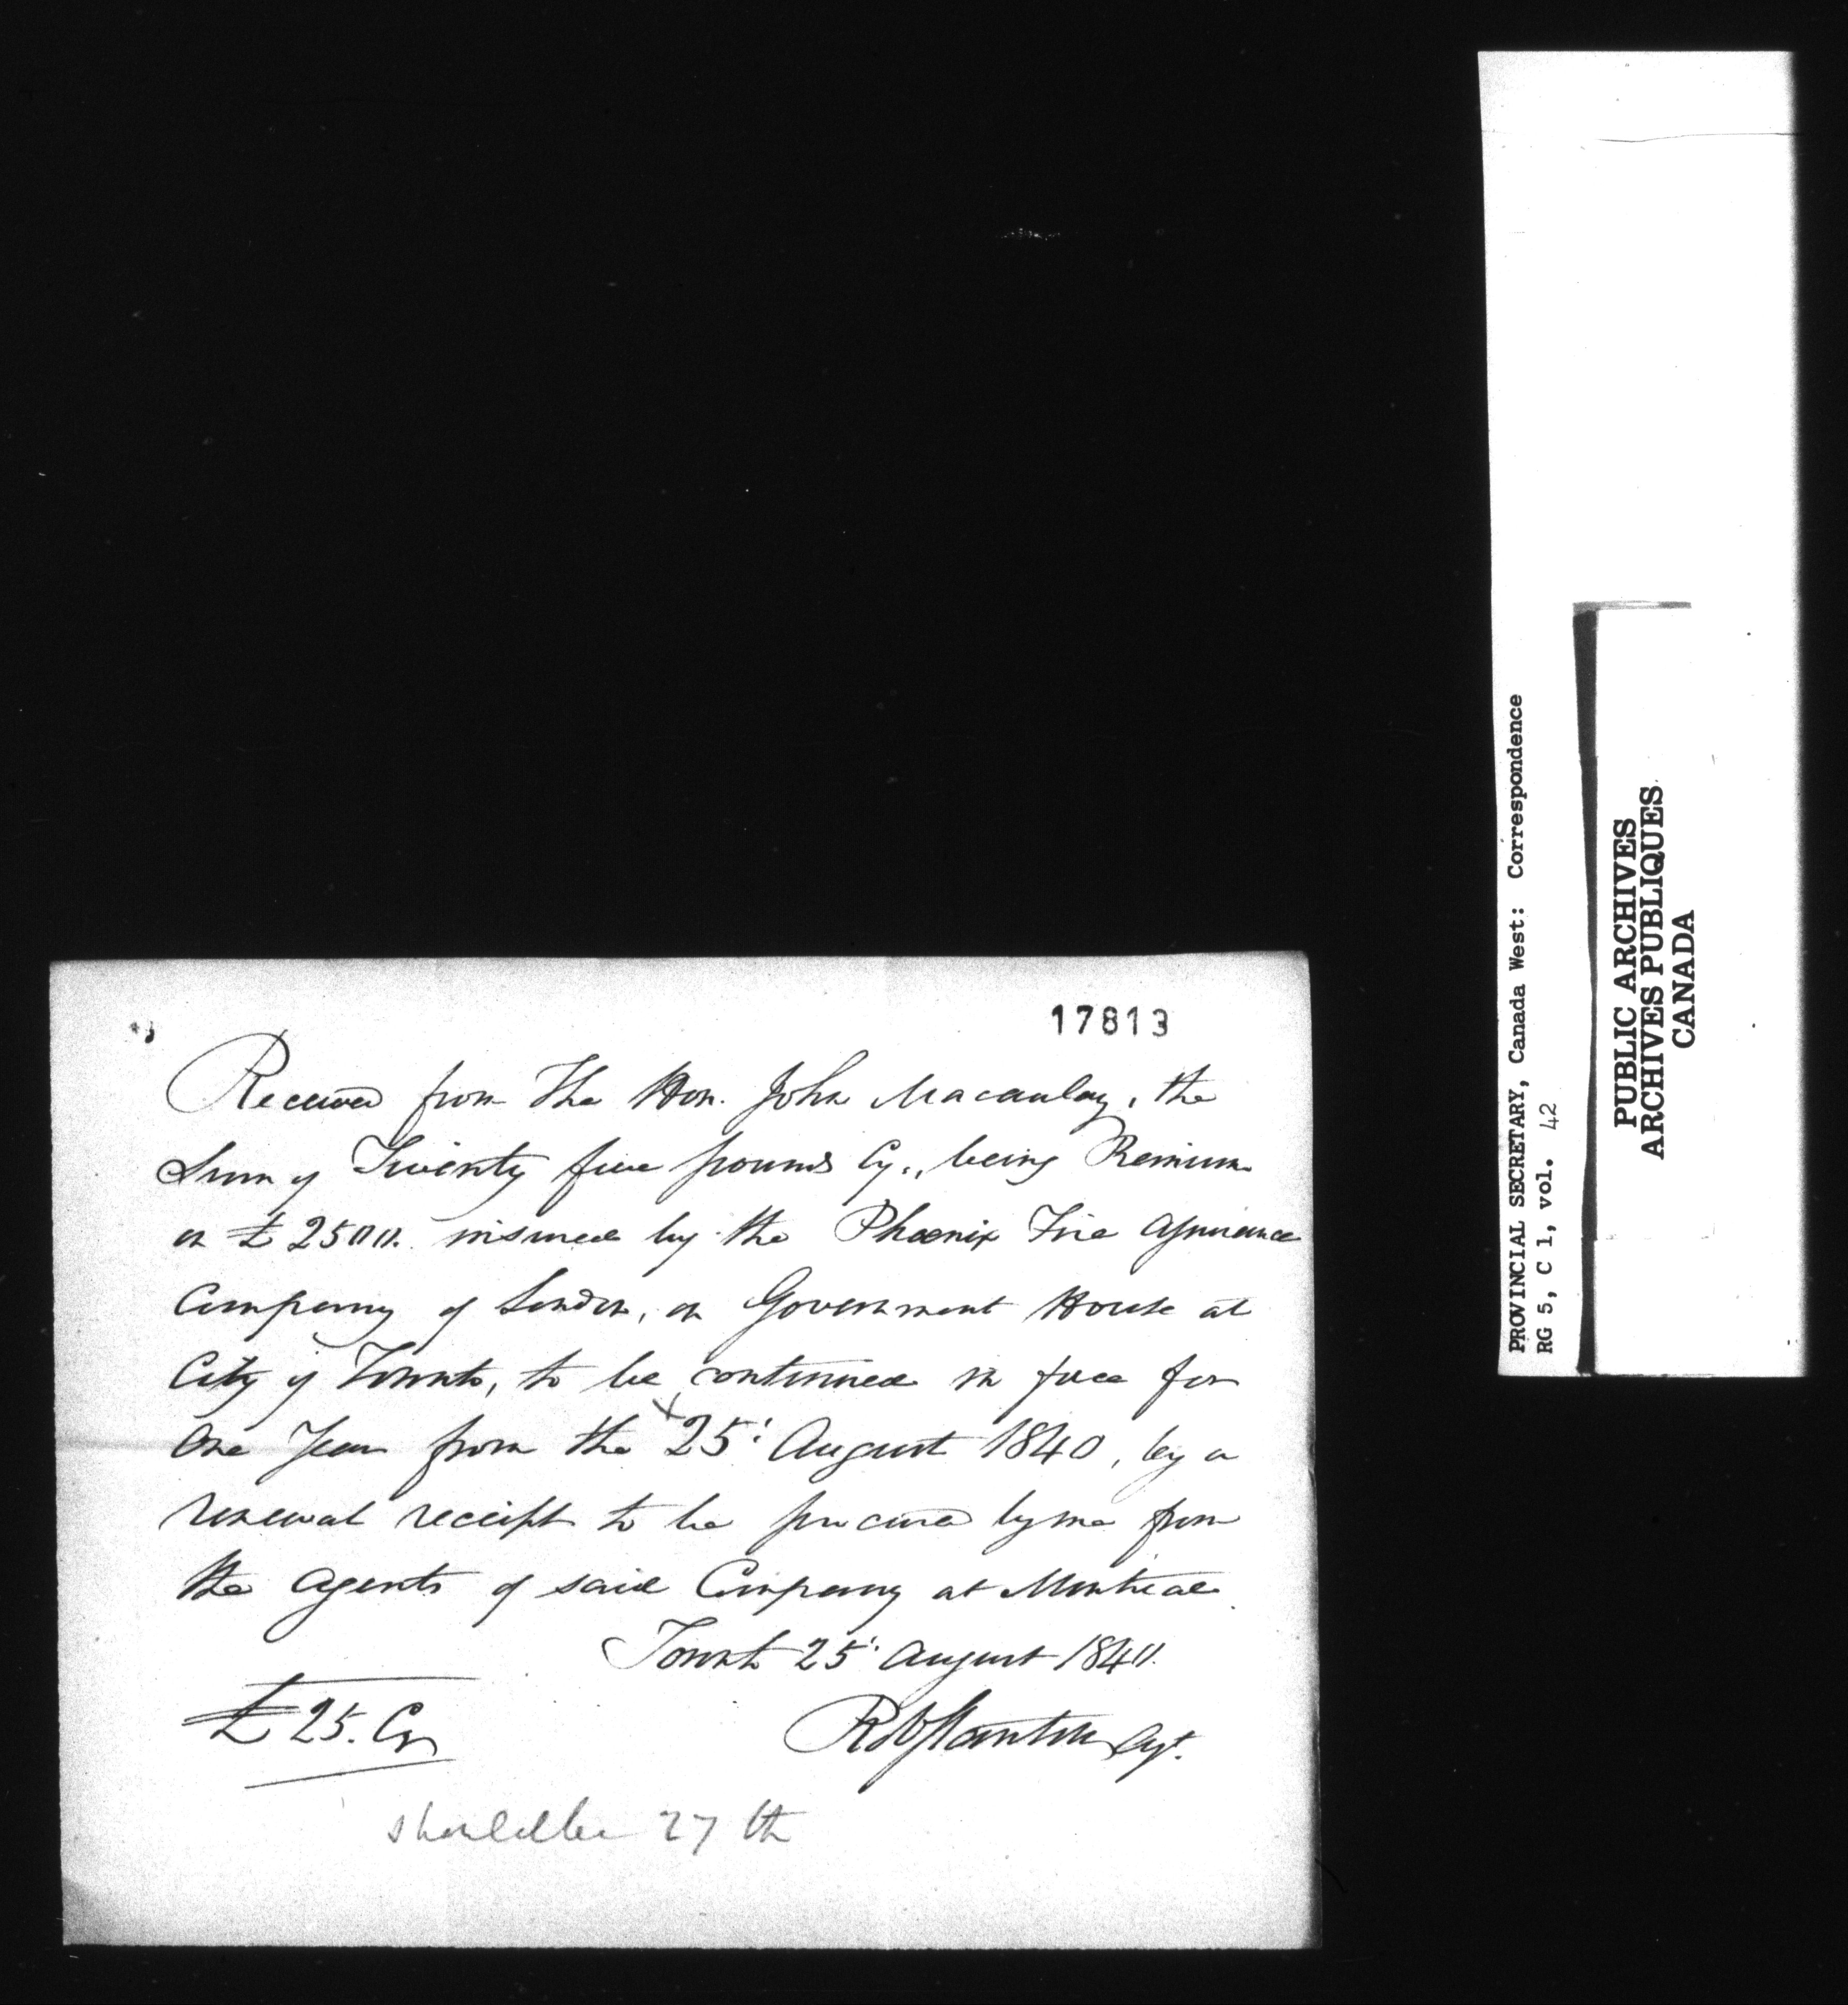 17813
Received from The Hon. John Macaulay, the
Sum of Twenty five pounds Cy., being Premium
on £2500. insured by the Phoenix Fire Assurance
Company of London, on Government House at
City of Toronto, to be continued in force for
One Year from the 25: August 1840, by a
renewal receipt to be procured by me from
the agents of said Company at Montreal.
Toronto 25: August 1840.
£25. Cy
Rob Stanton Agt.
should be 27th
PROVINCIAL SECRETARY, Canada West: Correspondence
RG 5, C 1, vol. 42
PUBLIC ARCHIVES
ARCHIVES PUBLIQUES
CANADA